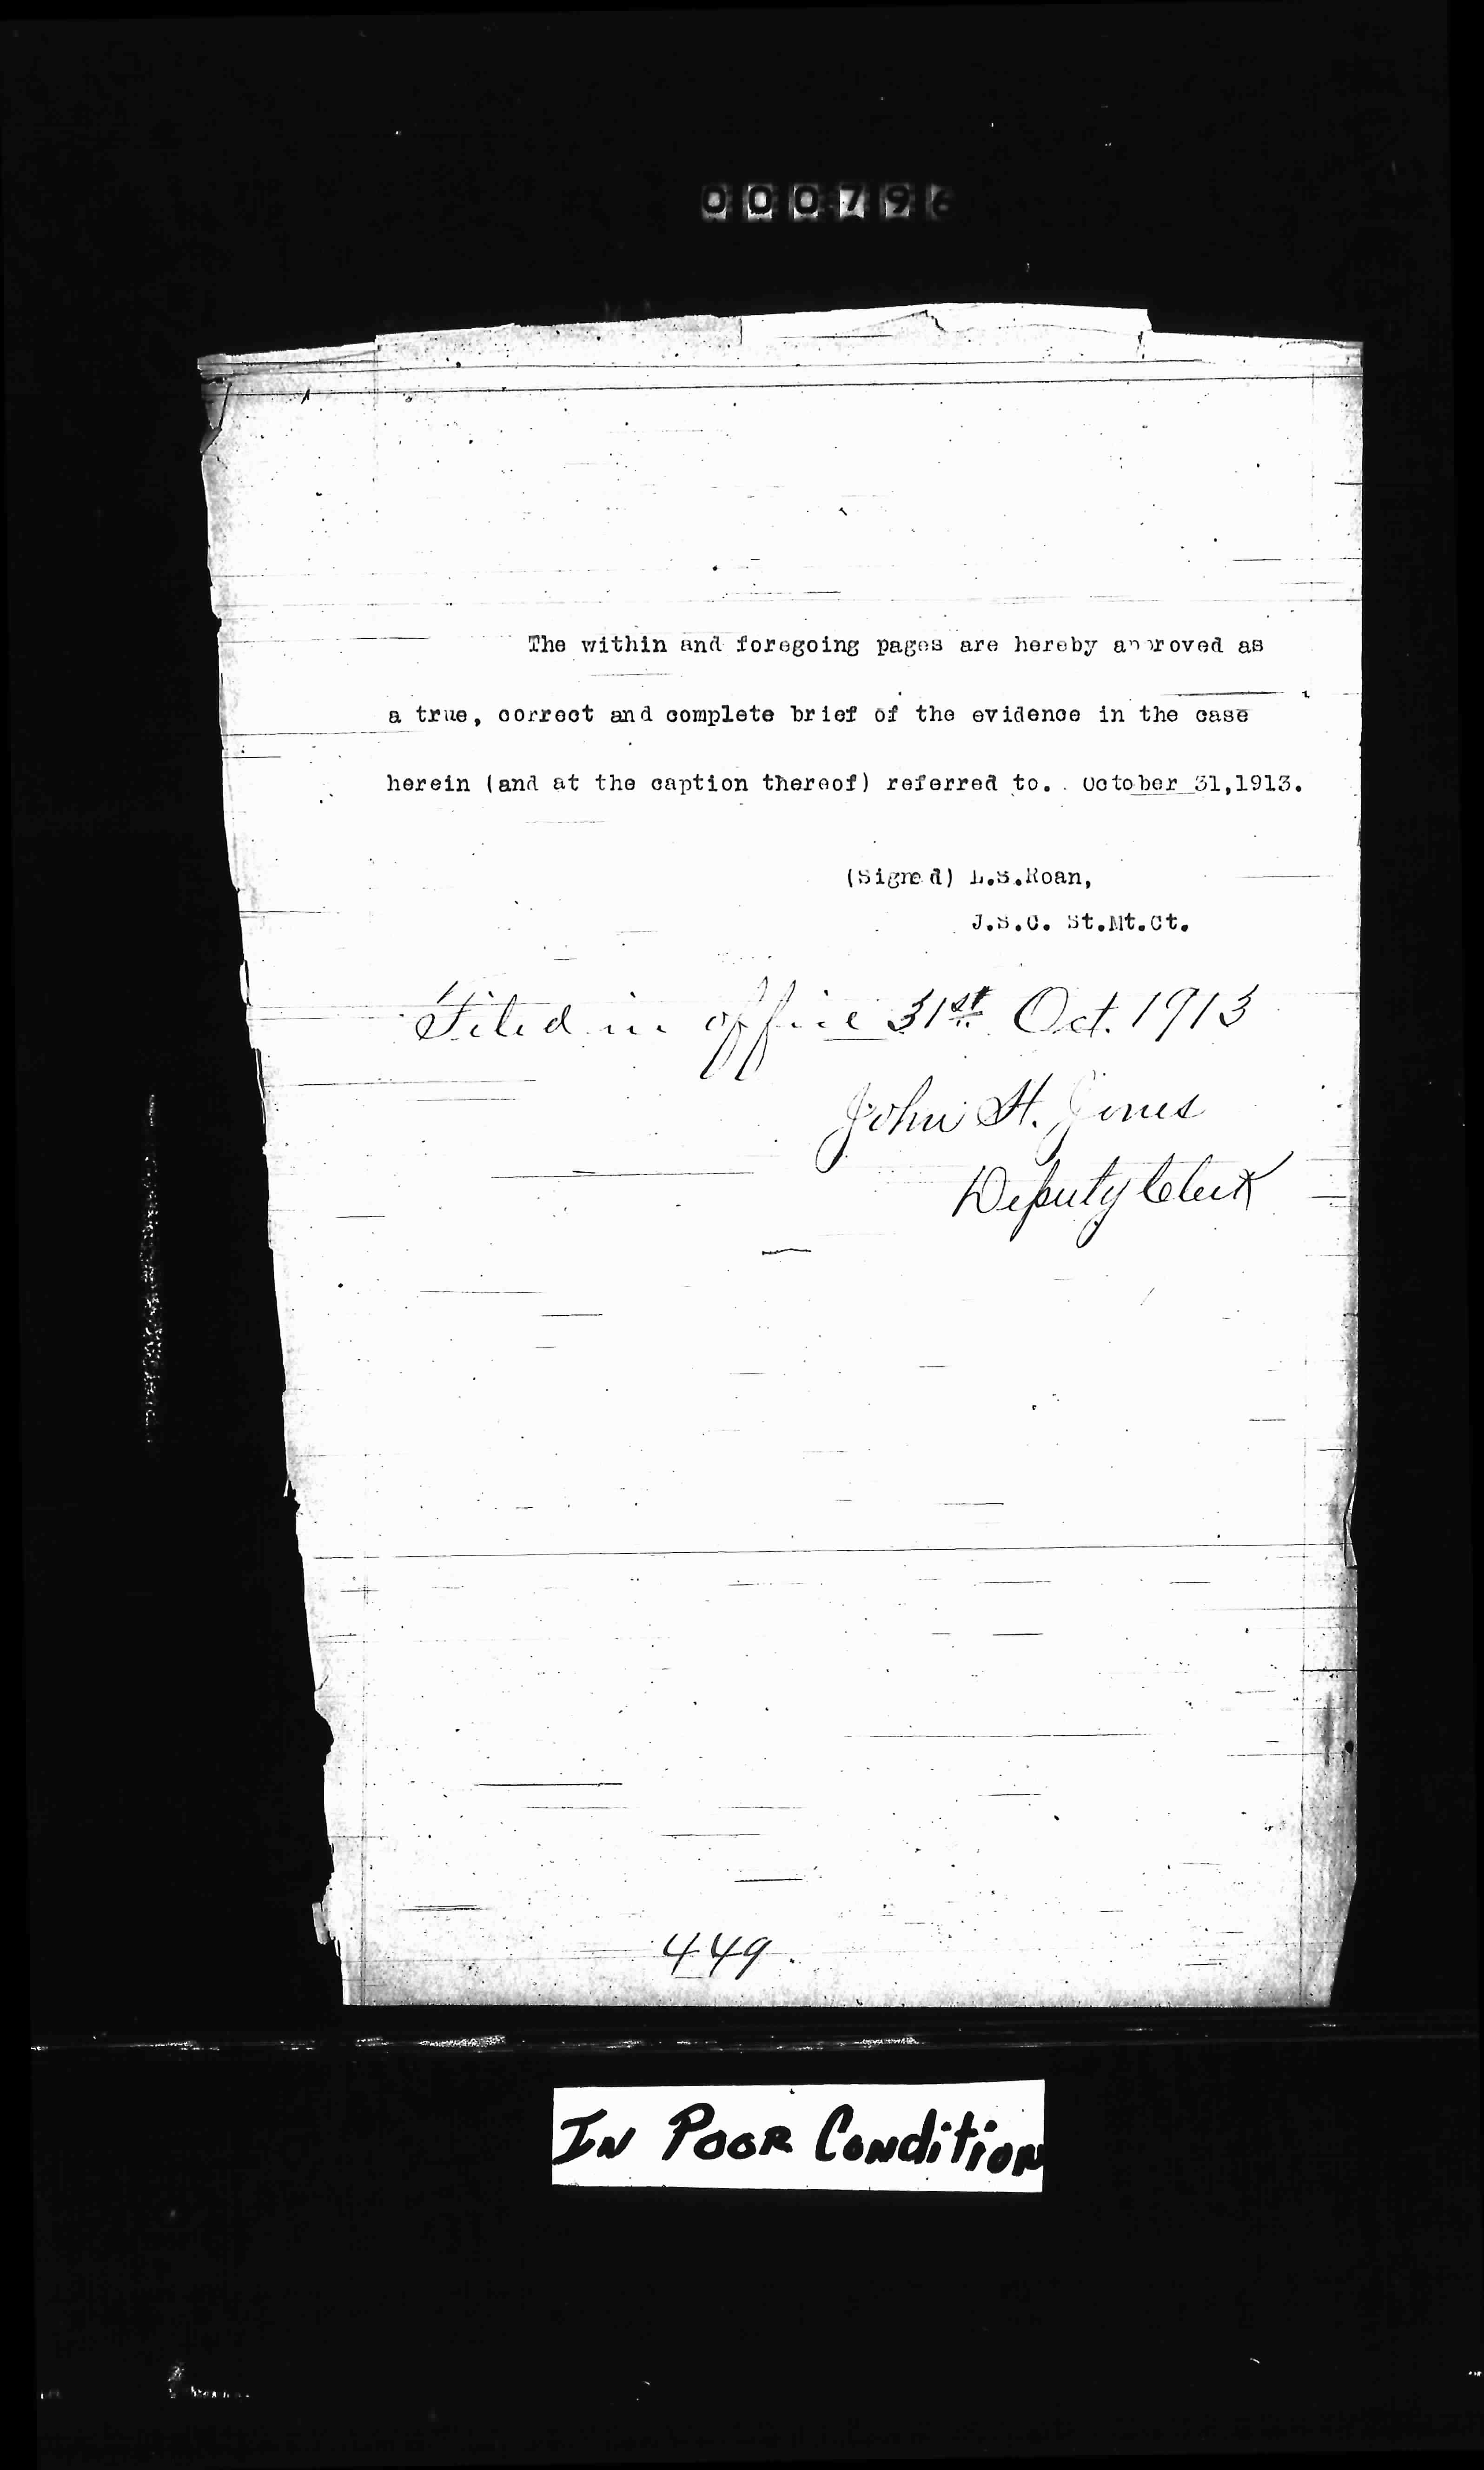 000796
The within and foregoing pages are hereby approved as
a true, correct and complete brief of the evidence in the case
herein (and at the caption thereof) referred to. October 31,1913.
(Signed) L.S.Roan,
J.S.C. St.Mt.Ct.
Filed in office 31st Oct. 1913
John H. Jones
Deputy Clerk
449.
In Poor Condition